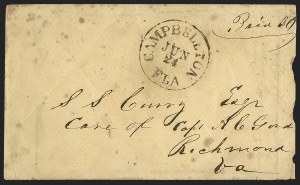 Paid
CAMPBELLTON
JUN
24
FLA
S S Curry Esqr
Care of Capt A C
Richmond
Va